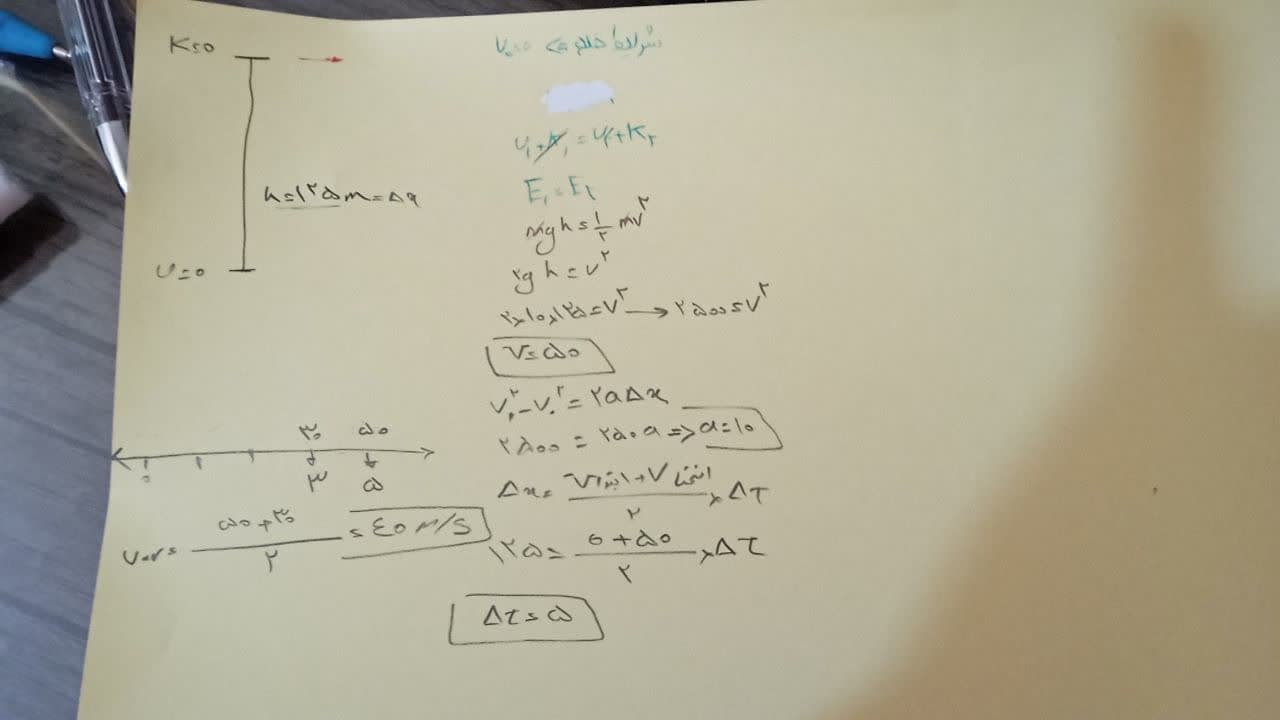 K=0
h=۱۲۵m=Δy
U=0
شرایط خلاء => V₀=0
U₁+K₁=U₂+K₂
E₁=E₂
mgh=½mv²
۲gh=v²
۲×۱۰×۱۲۵=V² → ۲۵۰۰=V²
V=۵۰
V₂²-V₀²=۲aΔx
۲۵۰۰=۲۵۰a => a=۱۰
Δx= (V ابتدا + V انتها)/۲ ×ΔT
۱۲۵= (0+۵۰)/۲ ×ΔT
ΔT=۵
۳۰ ۵۰
۰ ۳ ۵
Vav= (۵۰+۳۰)/۲ =٤۰ M/S